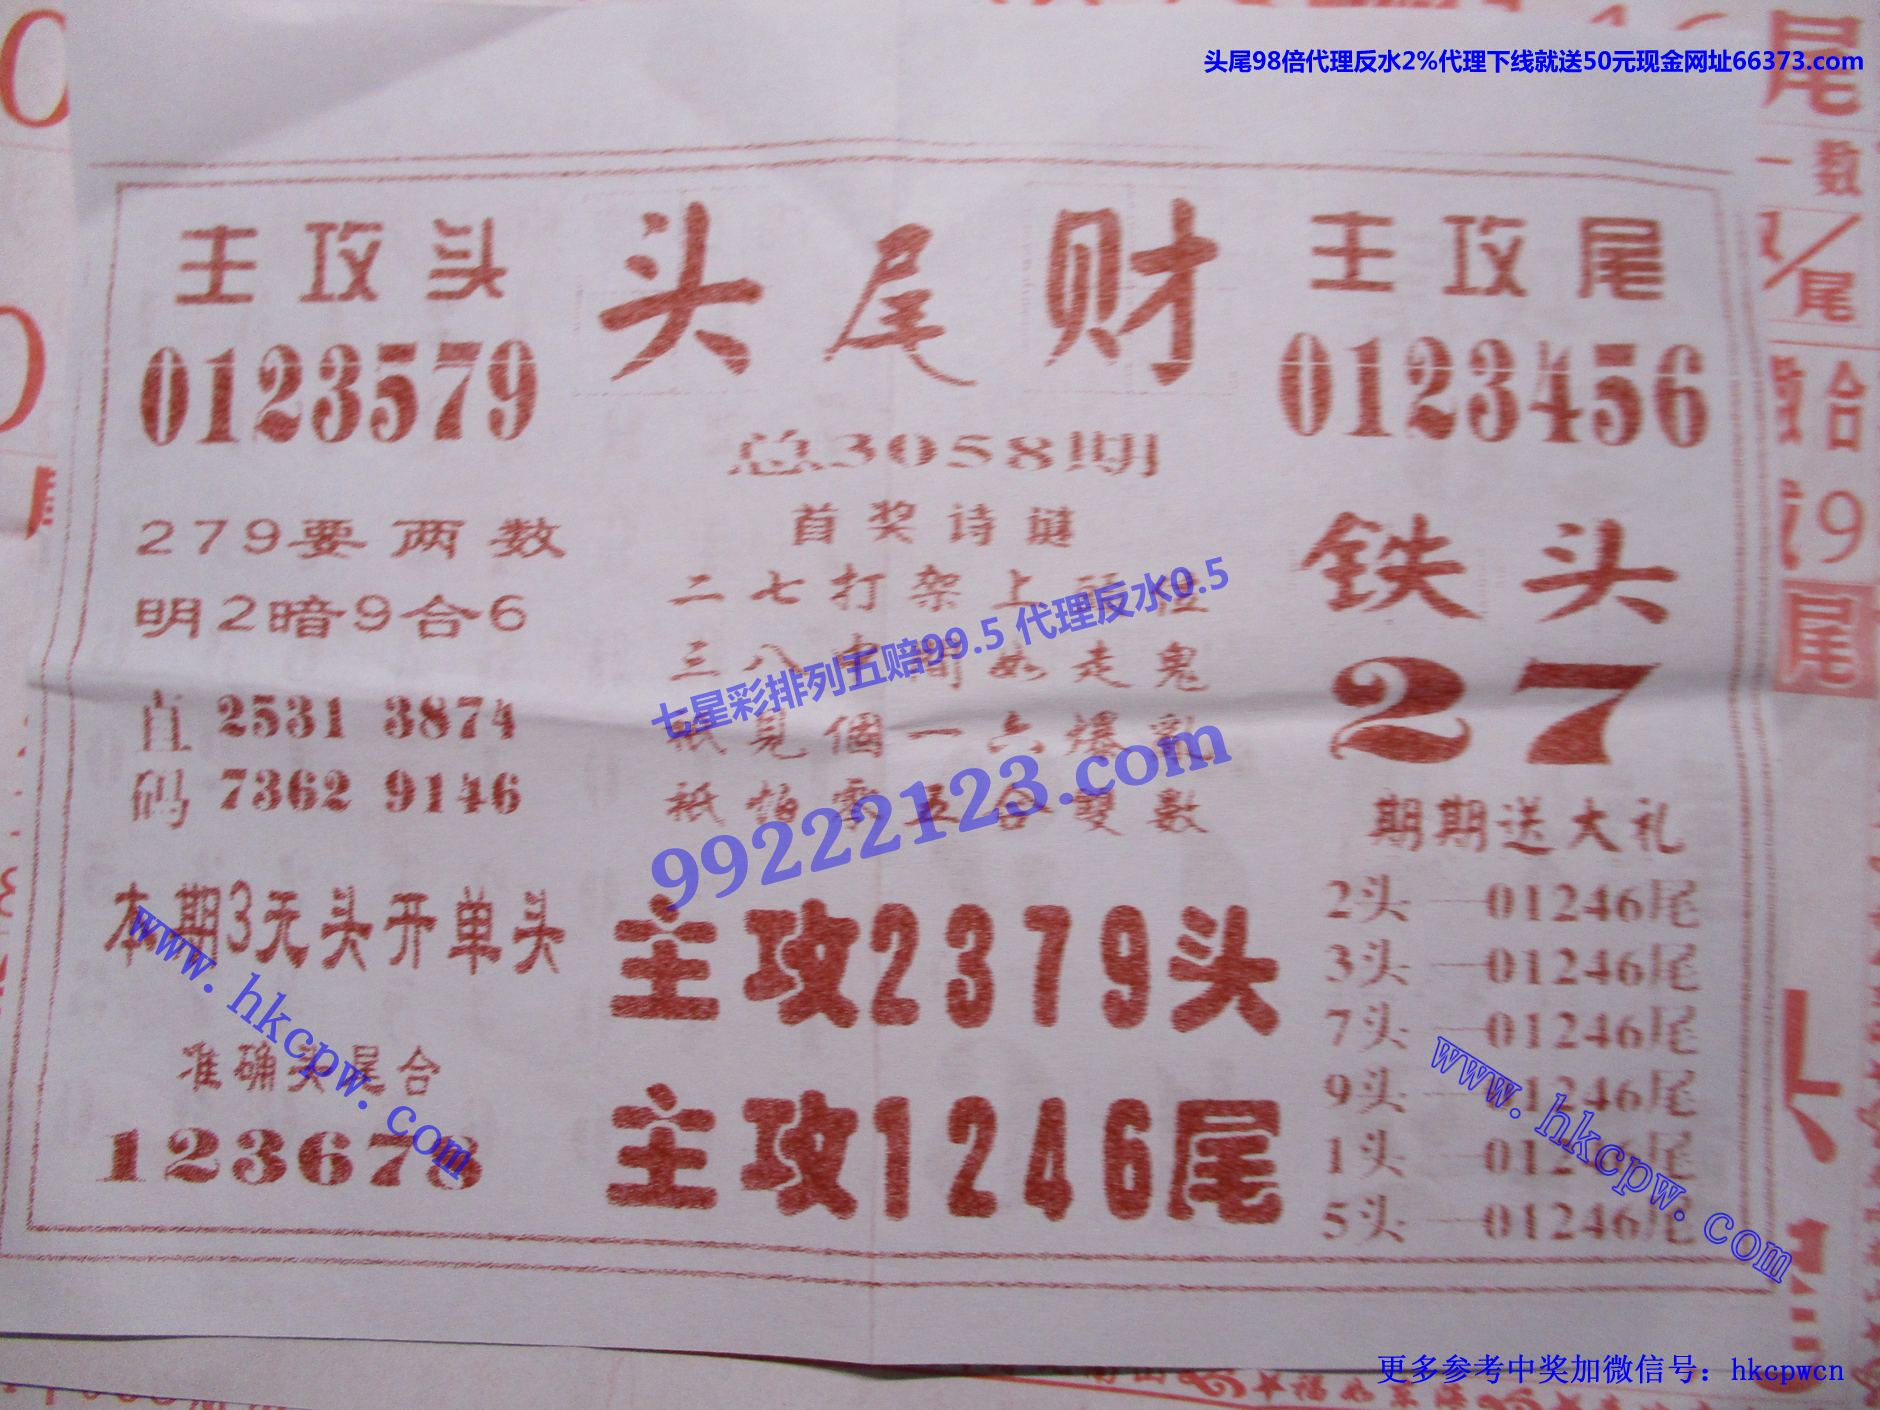 头尾98倍代理反水2%代理下线就送50元现金网址66373.com
主攻头
0123579
头尾财
主攻尾
0123456
总3058期
首奖诗谜
279要两数
明2暗9合6
直码
2531 3874
7362 9146
二七打架上
三八中间如走鬼
祇見個一六爆亂
祇怕零五合雙數
七星彩排列五赔99.5 代理反水0.5
99222123.com
铁头
27
期期送大礼
2头—01246尾
3头—01246尾
7头—01246尾
9头—01246尾
1头—01246尾
5头—01246尾
本期3无头开单头
准确头尾合
123678
主攻2379头
主攻1246尾
www.hkcpw.com
www.hkcpw.com
更多参考中奖加微信号：hkcpwcn
尾
一数
尾
合
9
尾